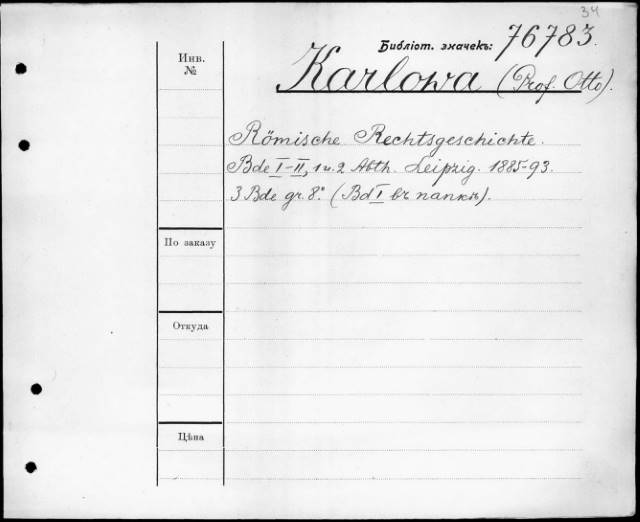 34
Библіот. значекъ: 76783.
Инв.
№
Karlowa (Prof. Otto).
Römische Rechtsgeschichte.
Bde I-II, 1 u. 2 Abth. Leipzig. 1885-93.
3 Bde gr. 8.° (Bd I въ папкѣ).
По заказу
Откуда
Цѣна